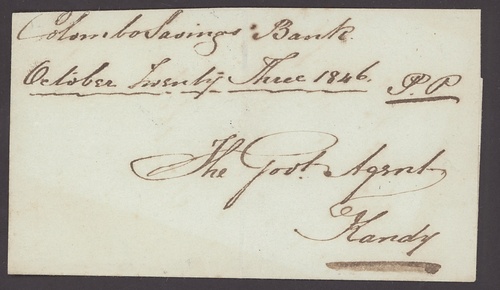 Colombo Savings Bank.
October Twenty Three 1846. P.P
The Govt. Agent
Kandy